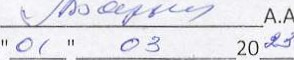 А.А
"01" 03 2023